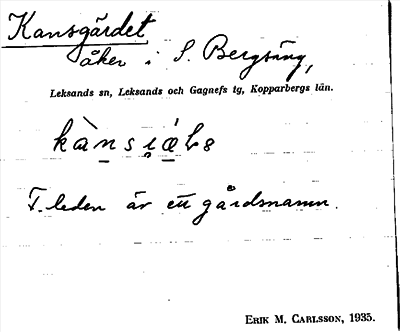 Kansgärdet
åker i S. Bergsäng,
Leksands sn, Leksands och Gagnefs tg, Kopparbergs län.
F. leden är ett gårdsnamn.
ERIK M. CARLSSON, 1935.